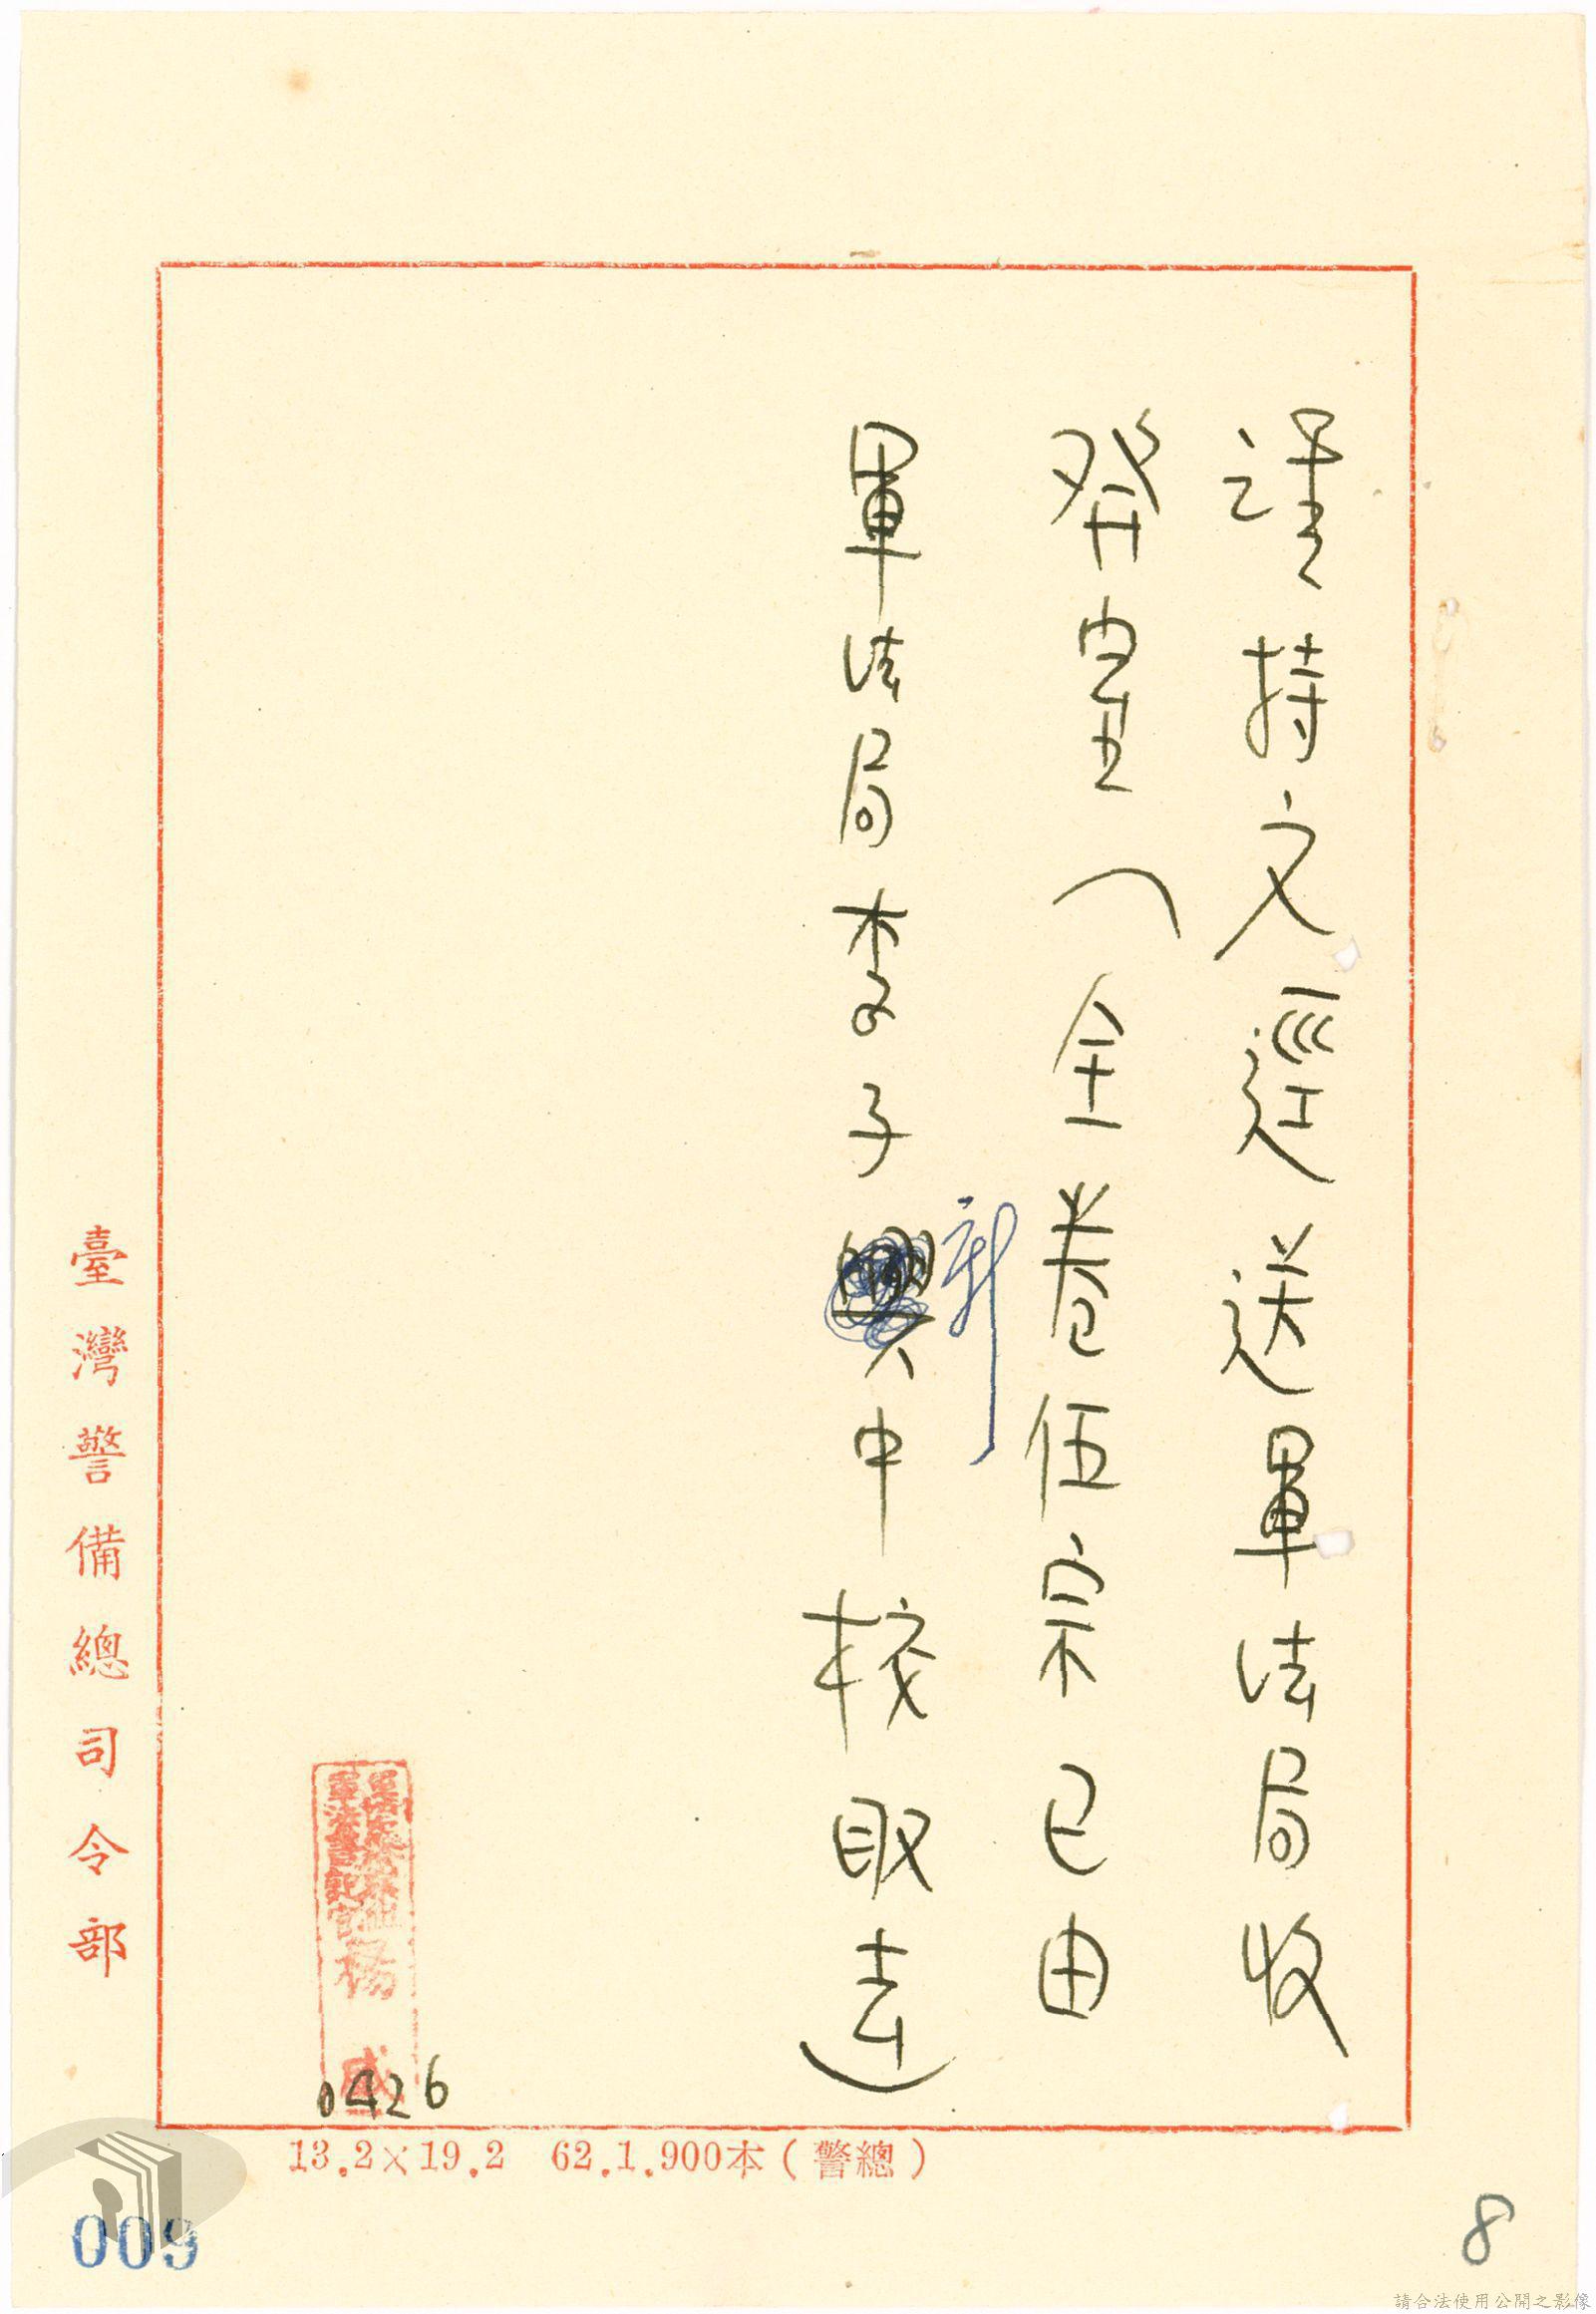 謹持文逕送軍法局收
發室（全卷伍宗已由
軍法局李子新中校取去）
楊
0426
臺灣警備總司令部
13.2×19.2 62.1.900本（警總）
009
8
請合法使用公開之影像